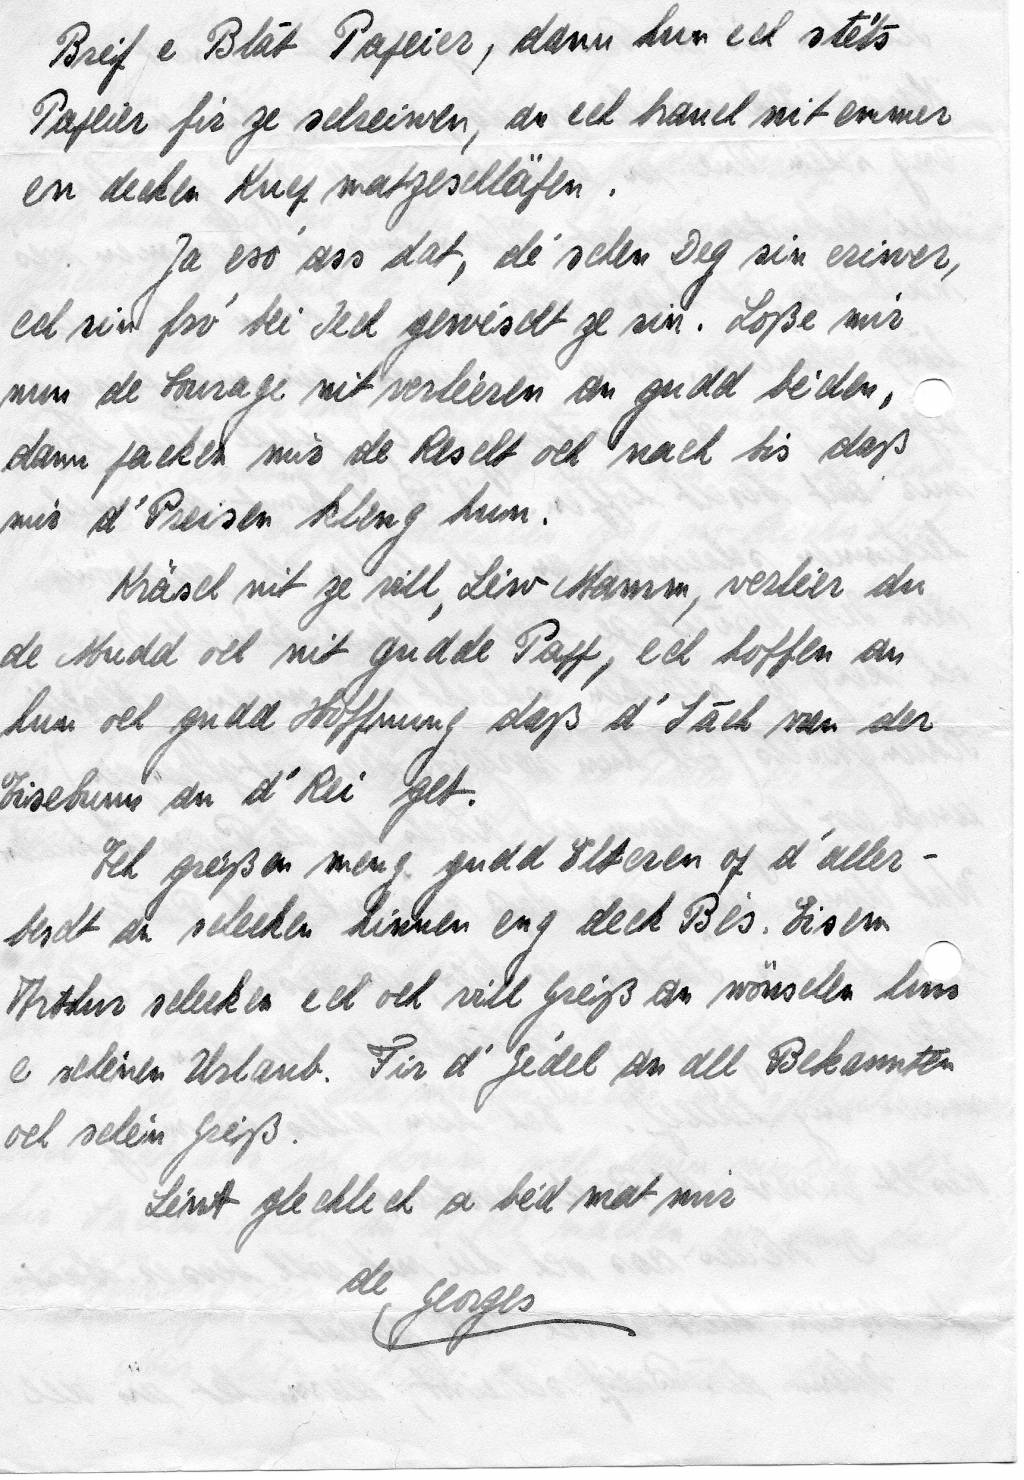 Breif e Blāt Papeier, dann hun ech stéts
Papeier fir ze schreiwen, an ech brauch nit emmer
en decken Knep matzeschläfen.
Ja esó ass dat, dé schen Deg sin eriwer,
ech sin fró bei Iech gewéscht ze sin. Loße mir
nun de Kurage nit verléieren an gudd béiden,
dann packen mir de Rescht och nach bis daß
mir d'Preisen kleng hun.
Kräsch nit ze vill, Léiw Mamm, verléier du
de Mudd och nit gudde Papp, ech hoffen an
hun och gudd Hoffnung daß d'Sāch vun der
Eisebunn an d'Rei get.
Ich gréißen meng gudd Elteren op d'aller-
bescht an schecken hinnen eng deck Bés. Eisem
Arthur schecken ech och vill Gréiß an wönschen him
e schéinen Urlaub. Fir d'Jédel an all Bekannten
och schéin Gréiß.
Léiwt glecklech a béd mat mir
de Georges